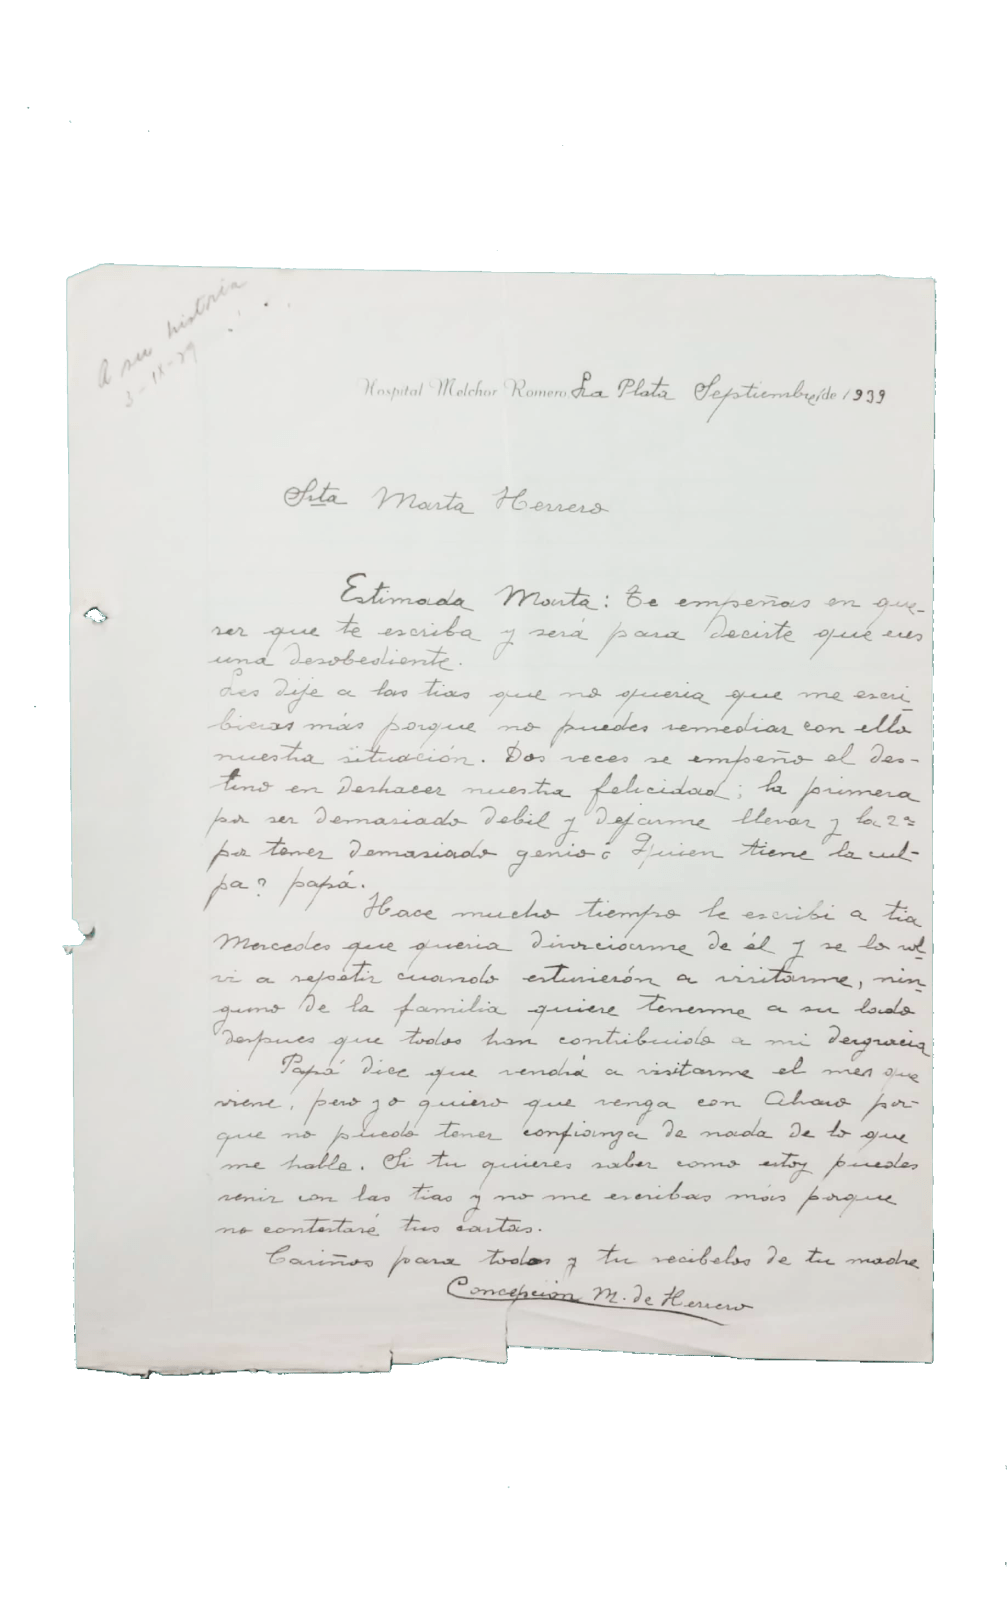 A su historia
3-IX-39
Hospital Melchor Romero, La Plata Septiembre/de 1939
Srta Marta Herrero
Estimada Marta: Te empeñas en que-
rer que te escriba y será para decirte que eres
una desobediente.
Les dije a las tias que no queria que me escri
bieras más porque no puedes remediar con ello
nuestra situación. Dos veces se empeño el des-
tino en deshacer nuestra felicidad; la primera
por ser demasiado debil y dejarme llevar y la 2ª
por tener demasiado genio ¿Quien tiene la cul-
pa? papá.
Hace mucho tiempo le escribi a tia
Mercedes que queria divorciarme de él y se lo vol
vi a repetir cuando estuvierón a visitarme, nin-
guno de la familia quiere tenerme a su lado
despues que todos han contribuido a mi desgracia
Papá dice que vendrá a visitarme el mes que
viene, pero yo quiero que venga con Alvaro por-
que no puedo tener confianza de nada de lo que
me hable. Si tu quieres saber como estoy puedes
venir con las tias y no me escribas más porque
no contestaré tus cartas.
Cariños para todos y tu recibelos de tu madre
Concepción M. de Herrero